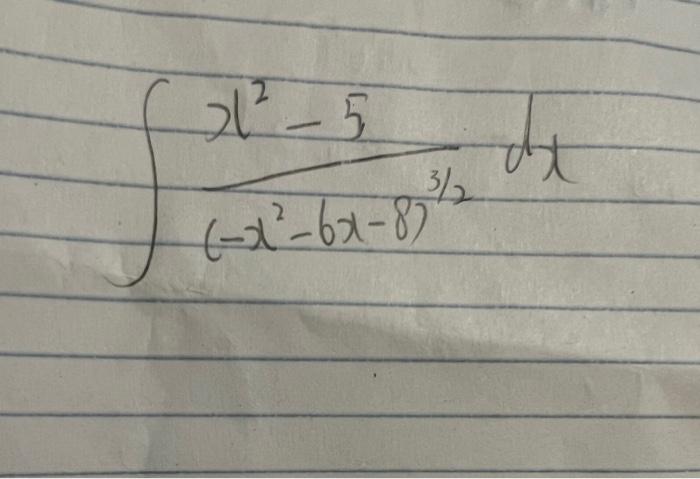 ∫ (x² - 5) / (-x² - 6x - 8)^{3/2} dx